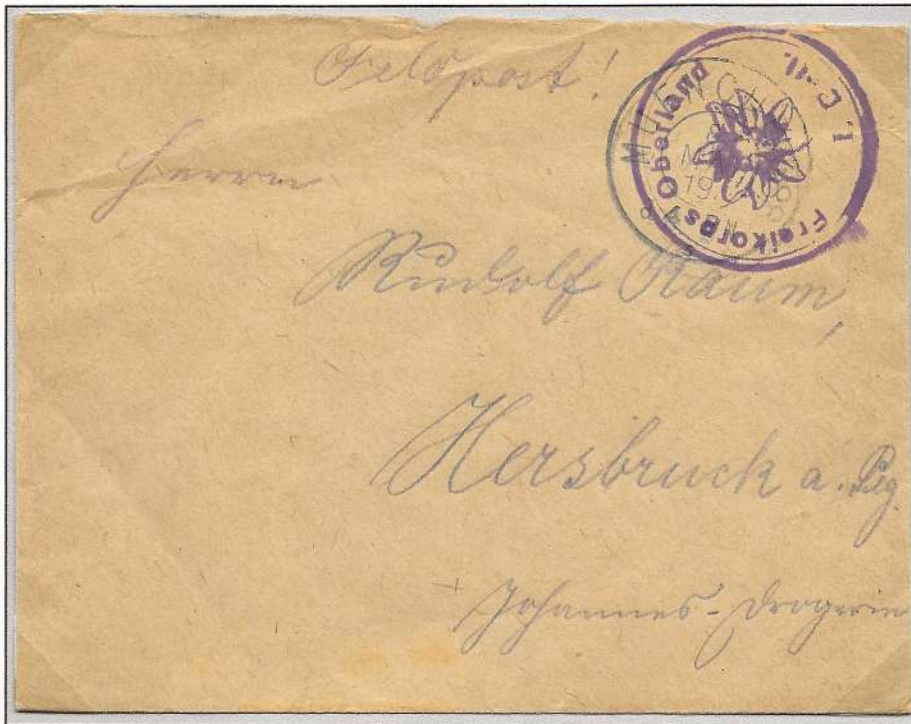 Feldpost!
Freikorps Oberland
MUENCHEN
Herrn
Rudolf Raum,
Hersbruck a. Peg.
Johannes-Drogerie